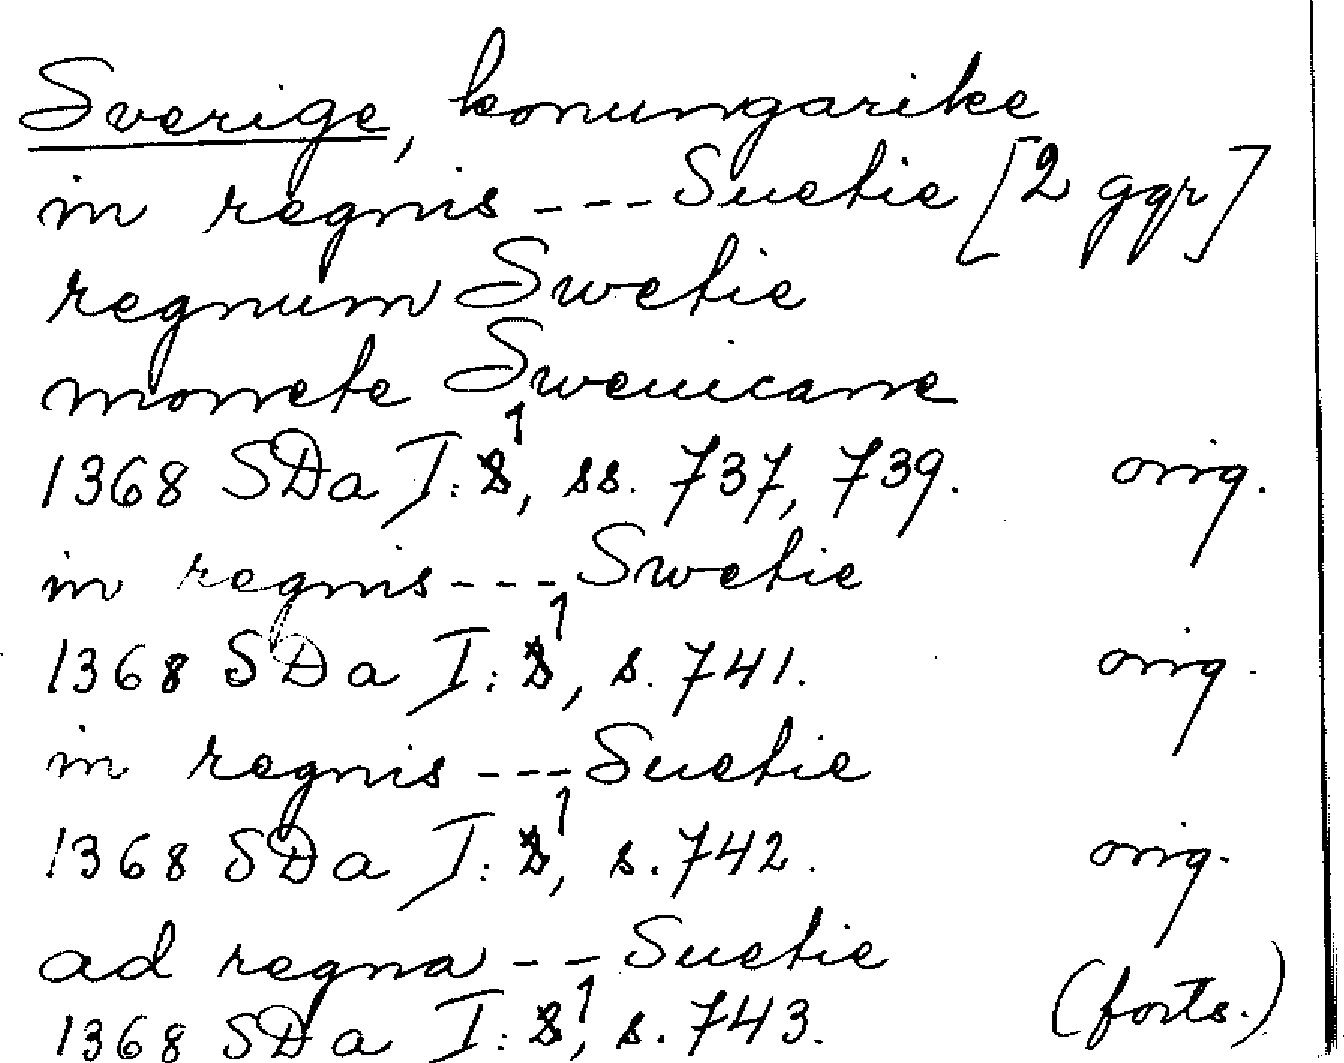 Sverige, konungarike
in regnis --- Suetie [2 ggr]
regnum Swetie
monete Sweuicane
1368 SDa I:1, ss. 737, 739. orig.
in regnis --- Swetie
1368 SDa I:1, s. 741. orig.
in regnis --- Suetie
1368 SDa I:1, s. 742. orig.
ad regna -- Suetie
1368 SDa I:1, s. 743. (forts.)